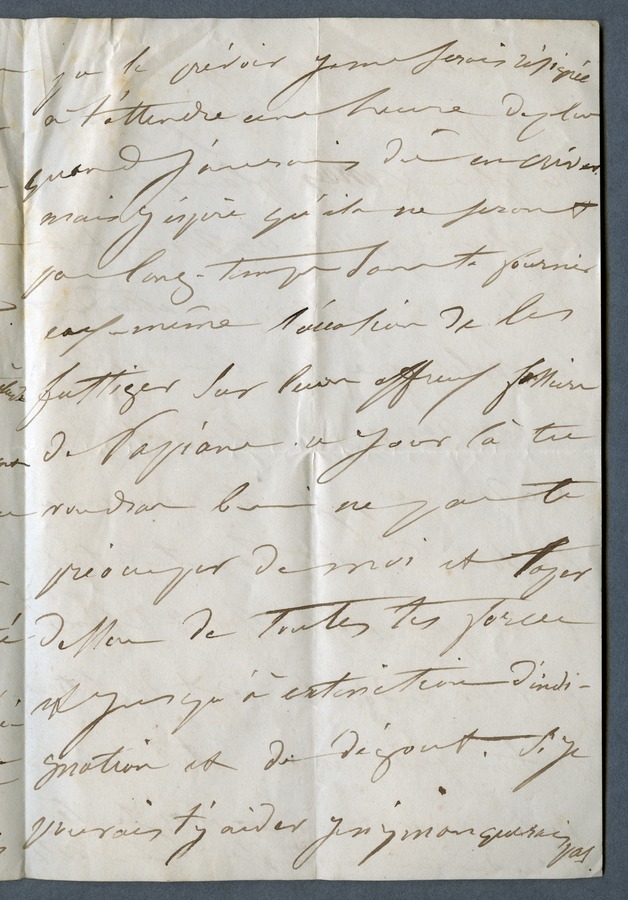 pu le prévoir je me serais résignée
à t'attendre une heure de plus
quand j'aurais dû en crever
mais j'espère qu'ils ne seront
pas long-temps sans te fournir
eux-même l'occasion de les
fustiger sur leur affreux
de ce jour là tu
voudras bien ne pas te
préocuper de moi et taper
dessus de toutes tes forces
et jusqu'à extinction d'indi-
gnation et de dégout. Si je
pouvais t'y aider je n'y manquerais
pas